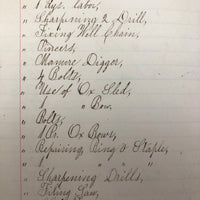 " 1 dys. labor,
" Sharpening 2 Drill,
" Fixing Well Chain,
" Pincers,
" Manure Digger,
" 4 Bolts,
" Use of Ox Sled,
" " Bow,
" Bolts,
" 1 Pr. Ox Bows,
" Repairing Ring & Staple,
" 1 " "
" Sharpening Drills,
" Filing Saw,